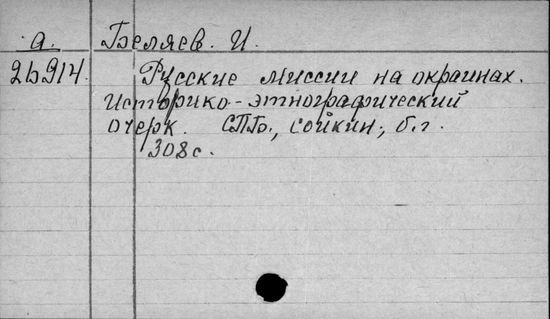 а. Беляев. И.
26914. Русские миссии на окраинах.
Историко-этнографический
очерк. СПБ., сойкин, б.г.
308 с.